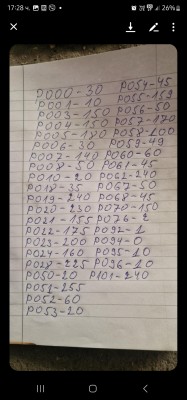 17:28 ч.
26%
P000-30
P001-10
P003-150
P004-150
P005-180
P006-30
P007-140
P008-50
P010-20
P018-35
P019-240
P020-230
P021-155
P022-175
P023-200
P024-160
P028-225
P050-20
P051-255
P052-60
P053-20
P054-45
P055-159
P056-50
P057-170
P058-100
P059-49
P060-60
P061-45
P062-240
P067-50
P068-45
P070-150
P076-2
P092-1
P094-0
P095-10
P096-10
P101-240